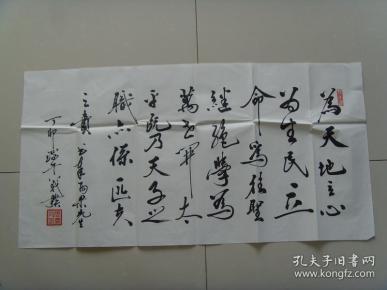 為天地立心
為生民立
命為往聖
繼絕學為
萬世開太
平既乃天子之
職亦係匹夫
之責 先生
丁卯端午
孔夫子旧书网
www.kongfz.com